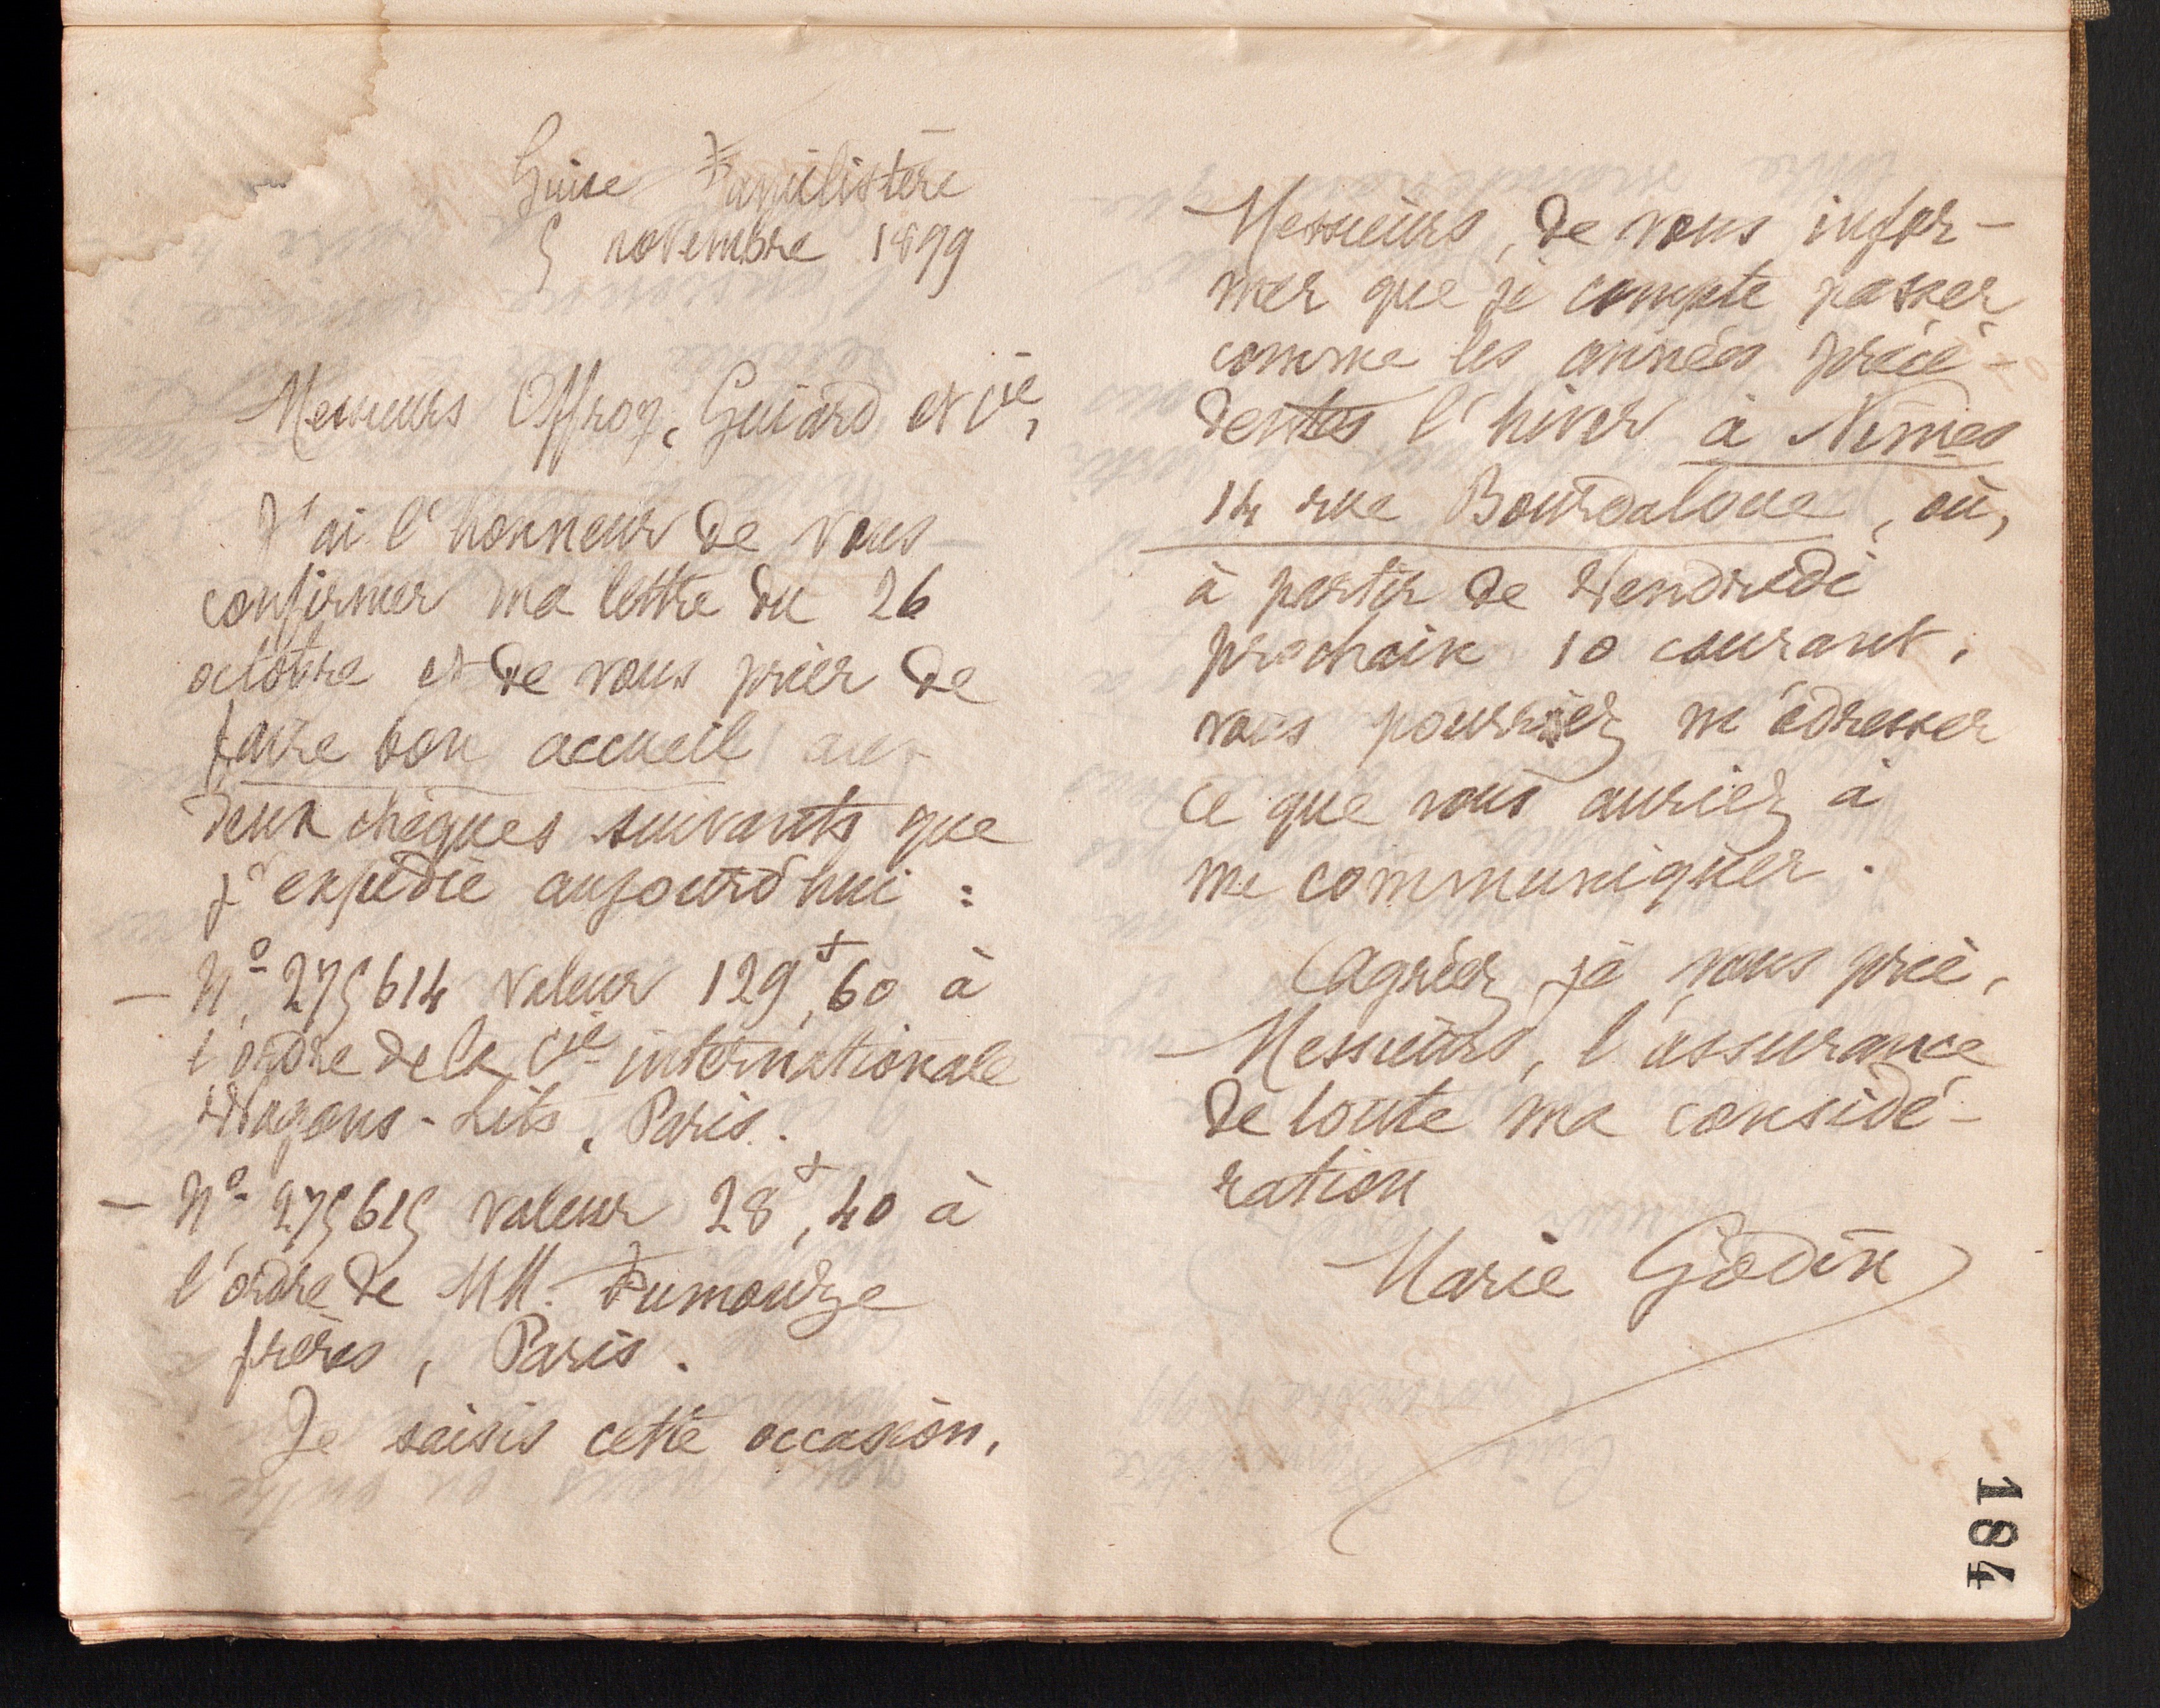 Guise Familistère
5 novembre 1899
Messieurs Offroy, Guiard et Cie,
J'ai l'honneur de vous
confirmer ma lettre du 26
octobre et de vous prier de
faire bon accueil aux
deux chèques suivants que
j'expédie aujourd'hui :
— No 275614 valeur 129f,60 à
l'ordre de la Cie internationale
Wagons-Lits, Paris.
— No 275615 valeur 28f,40 à
l'ordre de MM. Fumouze
frères, Paris.
Je saisis cette occasion,
Messieurs, de vous infor-
mer que je compte passer
comme les années précé-
dentes l'hiver à Nîmes
14 rue Bourdaloue, où,
à partir de Vendredi
prochain 10 courant,
vous pourriez m'adresser
ce que vous auriez à
me communiquer.
Agréez je vous prie,
Messieurs, l'assurance
de toute ma considé-
ration
Marie Godin
184